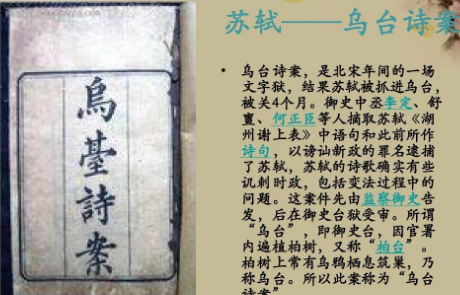 烏臺詩案
苏轼——乌台诗案
• 乌台诗案，是北宋年间的一场
文字狱，结果苏轼被抓进乌台，
被关4个月。御史中丞李定、舒
亶、何正臣等人摘取苏轼《湖
州谢上表》中语句和此前所作
诗句，以谤讪新政的罪名逮捕
了苏轼，苏轼的诗歌确实有些
讥刺时政，包括变法过程中的
问题。这案件先由监察御史告
发，后在御史台狱受审。所谓
“乌台”，即御史台，因官署
内遍植柏树，又称“柏台”。
柏树上常有乌鸦栖息筑巢，乃
称乌台。所以此案称为“乌台
诗案”